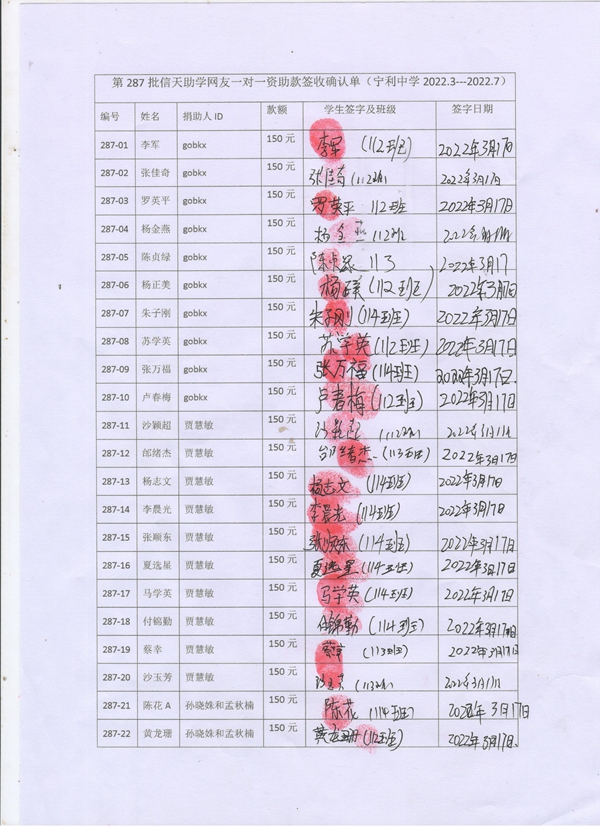 第 287 批信天助学网友一对一资助款签收确认单（宁利中学 2022.3---2022.7）
编号 姓名 捐助人 ID 款额 学生签字及班级 签字日期
287-01 李军 gobkx 150 元 李军 (112班) 2022年3月17日
287-02 张佳奇 gobkx 150 元 张佳奇 (112班) 2022年3月17日
287-03 罗英平 gobkx 150 元 罗英平 112班 2022年3月17日
287-04 杨金燕 gobkx 150 元 杨金燕 112班
287-05 陈贞绿 gobkx 150 元 陈贞绿 113 2022年3月17
287-06 杨正美 gobkx 150 元 杨正美 (112班) 2022年3月17日
287-07 朱子刚 gobkx 150 元 朱子刚 (114班) 2022年3月17日
287-08 苏学英 gobkx 150 元 苏学英 (112班) 2022年3月17日
287-09 张万福 gobkx 150 元 张万福 (114班) 2022年3月17日.
287-10 卢春梅 gobkx 150 元 卢春梅 (112班) 2022年3月17日
287-11 沙颖超 贾慧敏 150 元 (112班)
287-12 邰绪杰 贾慧敏 150 元 邰绪杰 (113班) 2022年3月17日
287-13 杨志文 贾慧敏 150 元 杨志文 (114班) 2022年3月17日
287-14 李晨光 贾慧敏 150 元 李晨光 (114班) 2022年3月17日
287-15 张顺东 贾慧敏 150 元 张顺东 (114班) 2022年3月17日
287-16 夏选星 贾慧敏 150 元 夏选星 (114班) 2022年3月17日
287-17 马学英 贾慧敏 150 元 马学英 (114班) 2022年3月17日
287-18 付锦勤 贾慧敏 150 元 付锦勤 (114班) 2022年3月17日
287-19 蔡幸 贾慧敏 150 元 蔡幸 (113班) 2022年3月17日
287-20 沙玉芳 贾慧敏 150 元 沙玉芳
287-21 陈花 A 孙晓姝和孟秋楠 150 元 陈花 (114班) 2022年3月17日
287-22 黄龙珊 孙晓姝和孟秋楠 150 元 黄龙珊 (112班) 2022年3月17日.